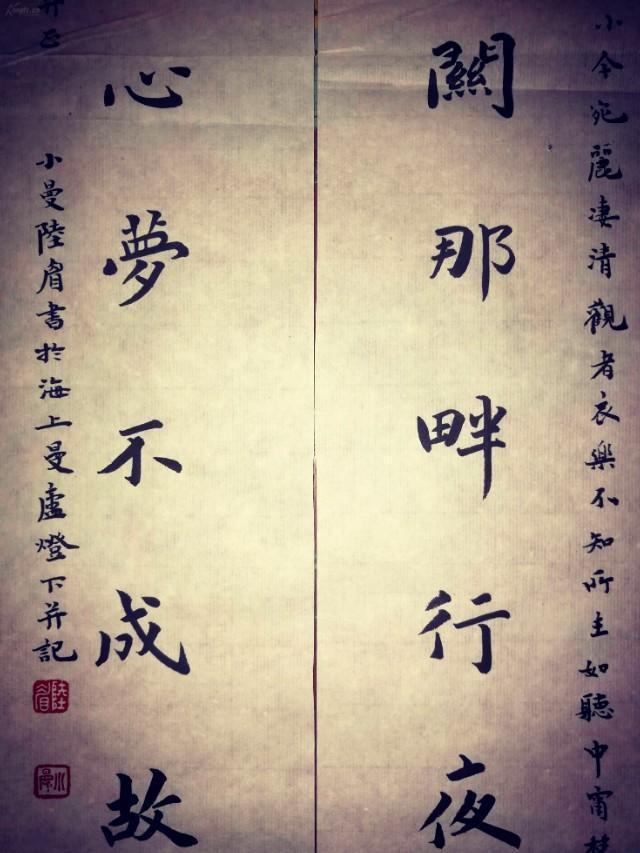 小令宛麗凄清觀者衣樂不知所主如聽中宵梵
關那畔行夜
心夢不成故
并正
小曼陸眉書於海上曼廬燈下并記
陸眉
小曼